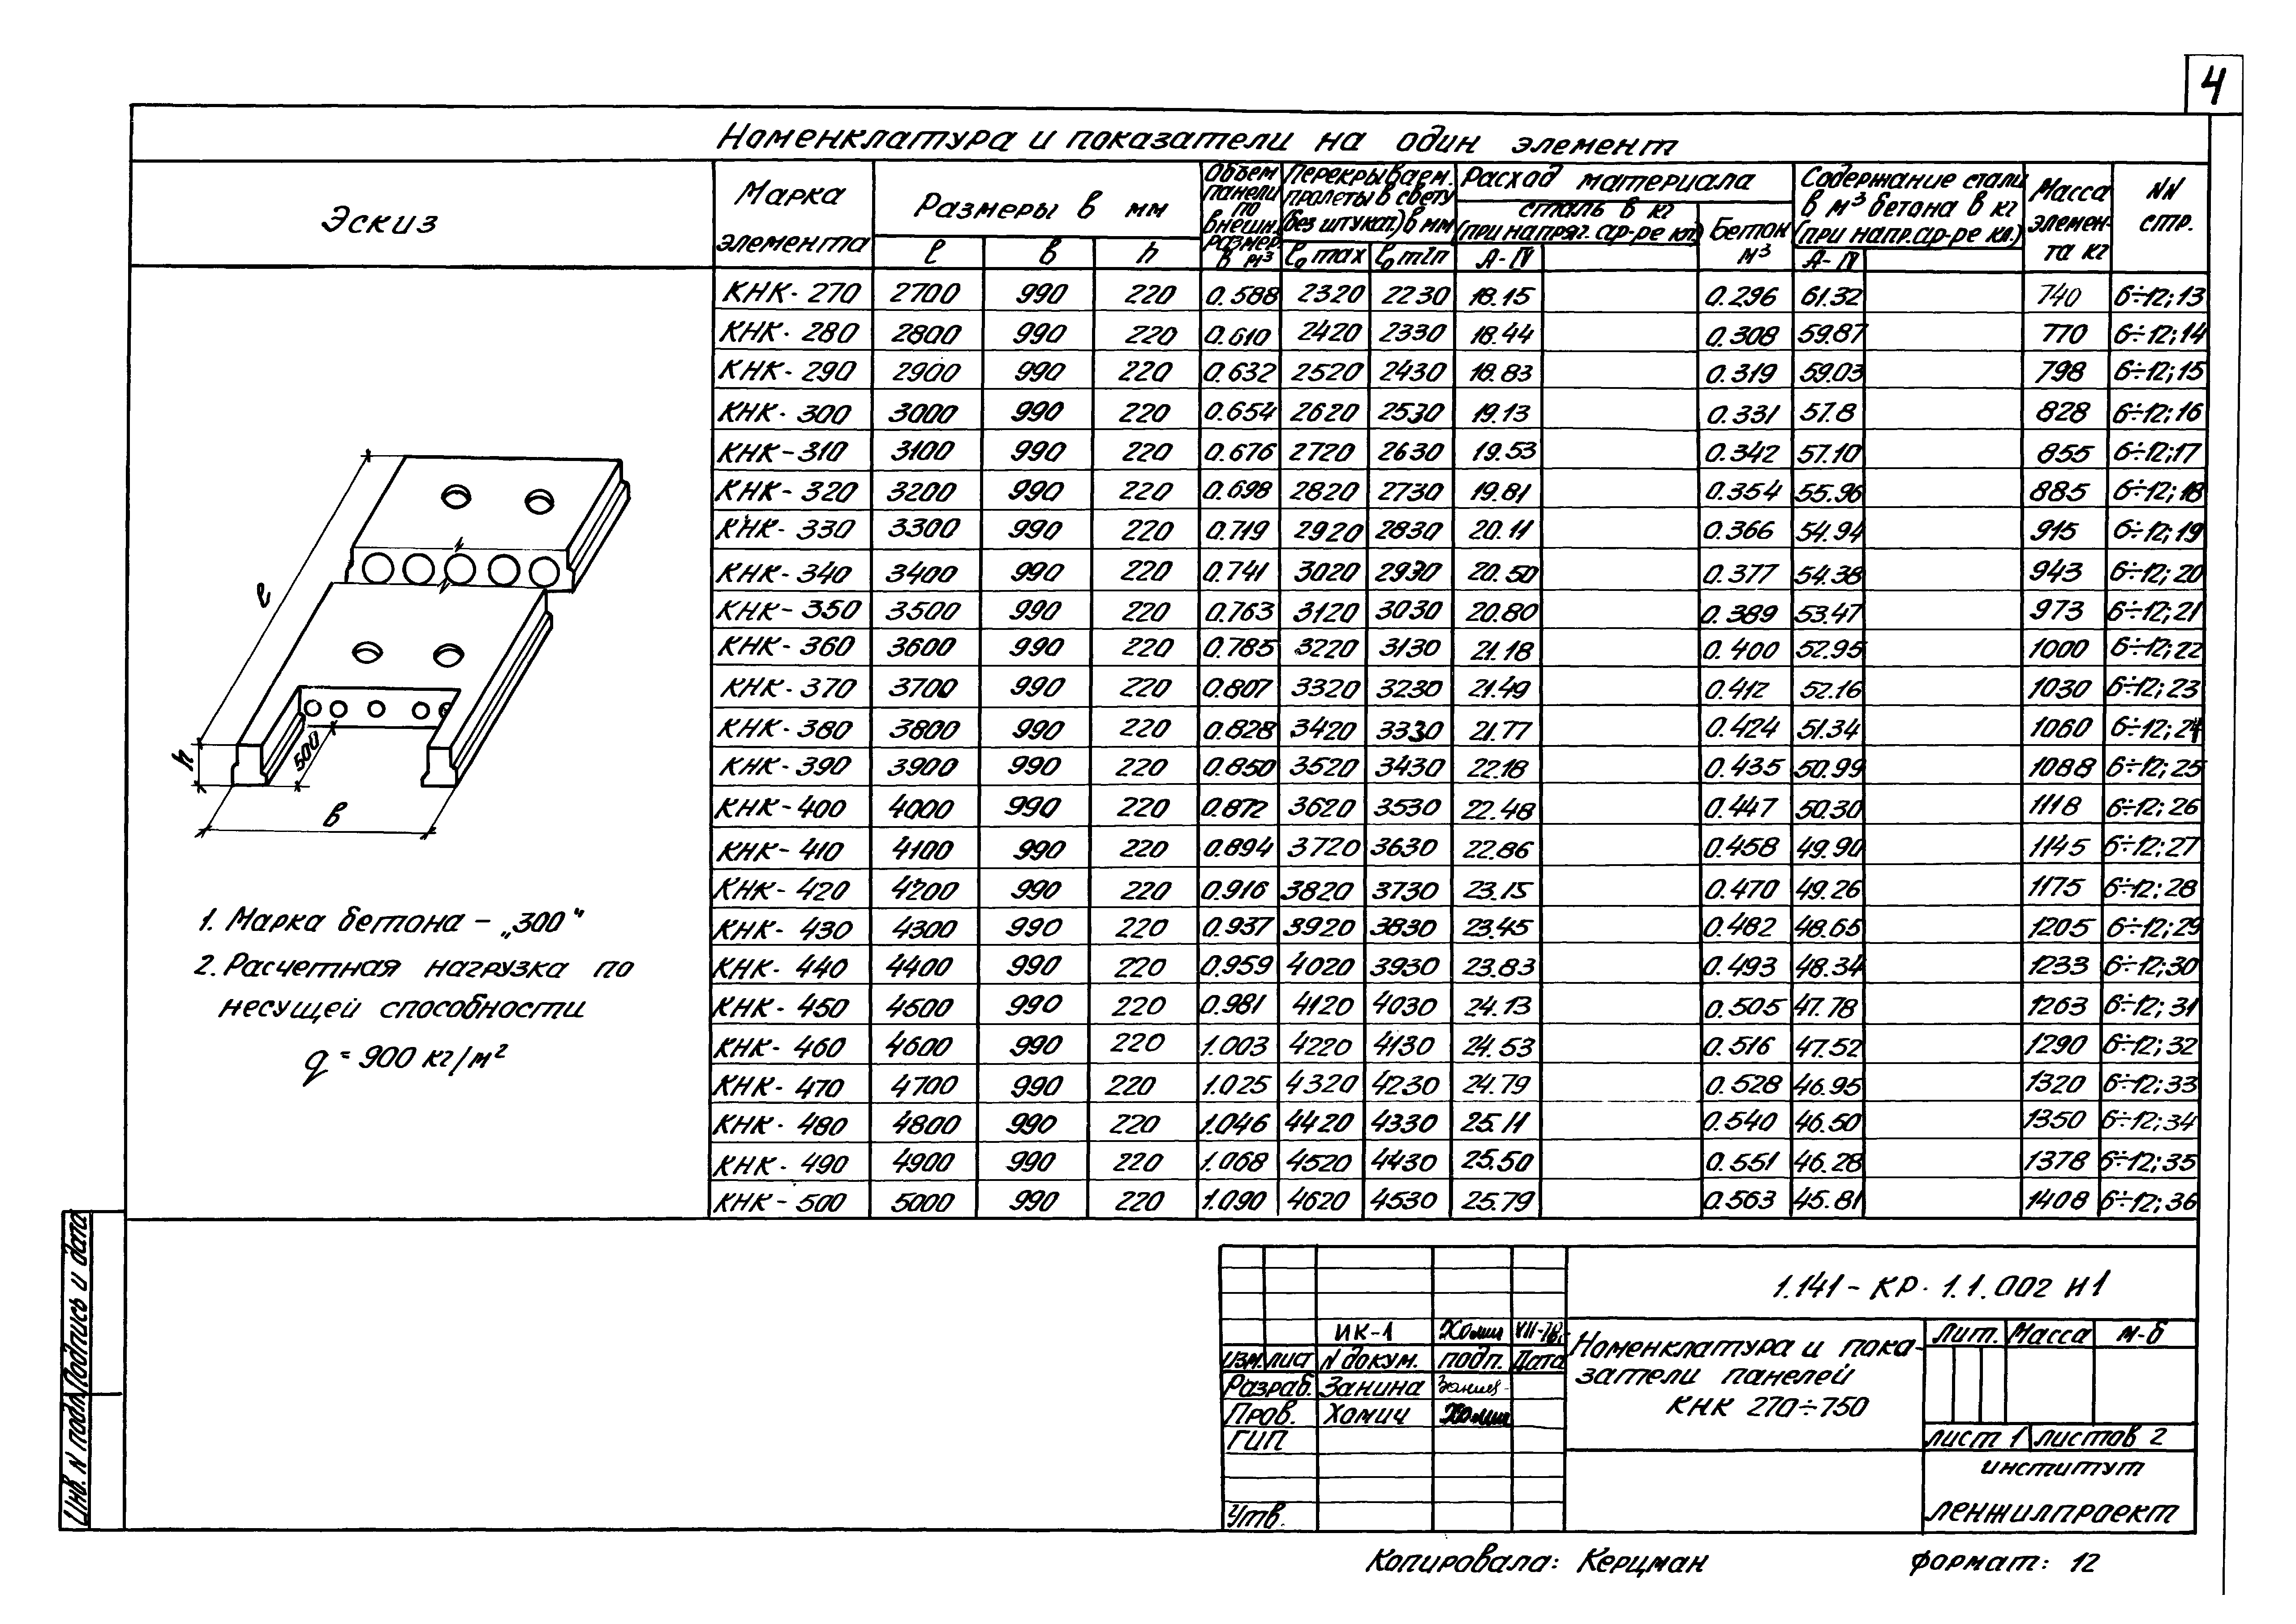 4
Номенклатура и показатели на один элемент
Эскиз
Марка элемента
Размеры в мм
l в h
Объем панели по внешн. размер. в м³
Перекрываем. пролеты в свету (без штукат.) в мм
l₀ max l₀ min
Расход материала
сталь в кг (при напряг. ар-ре кл.)
А-IV
Бетон м³
Содержание стали в м³ бетона в кг (при напр. ар-ре кл.)
А-IV
Масса элемен-та кг
NN стр.
КНК-270 2700 990 220 0.588 2320 2230 18.15 0.296 61.32 740 6÷12;13
КНК-280 2800 990 220 0.610 2420 2330 18.44 0.308 59.87 770 6÷12;14
КНК-290 2900 990 220 0.632 2520 2430 18.83 0.319 59.03 798 6÷12;15
КНК-300 3000 990 220 0.654 2620 2530 19.13 0.331 57.8 828 6÷12;16
КНК-310 3100 990 220 0.676 2720 2630 19.53 0.342 57.10 855 6÷12;17
КНК-320 3200 990 220 0.698 2820 2730 19.81 0.354 55.96 885 6÷12;18
КНК-330 3300 990 220 0.719 2920 2830 20.11 0.366 54.94 915 6÷12;19
КНК-340 3400 990 220 0.741 3020 2930 20.50 0.377 54.38 943 6÷12;20
КНК-350 3500 990 220 0.763 3120 3030 20.80 0.389 53.47 973 6÷12;21
КНК-360 3600 990 220 0.785 3220 3130 21.18 0.400 52.95 1000 6÷12;22
КНК-370 3700 990 220 0.807 3320 3230 21.49 0.412 52.16 1030 6÷12;23
КНК-380 3800 990 220 0.828 3420 3330 21.77 0.424 51.34 1060 6÷12;24
КНК-390 3900 990 220 0.850 3520 3430 22.18 0.435 50.99 1088 6÷12;25
КНК-400 4000 990 220 0.872 3620 3530 22.48 0.447 50.30 1118 6÷12;26
КНК-410 4100 990 220 0.894 3720 3630 22.86 0.458 49.90 1145 6÷12;27
КНК-420 4200 990 220 0.916 3820 3730 23.15 0.470 49.26 1175 6÷12;28
КНК-430 4300 990 220 0.937 3920 3830 23.45 0.482 48.65 1205 6÷12;29
КНК-440 4400 990 220 0.959 4020 3930 23.83 0.493 48.34 1233 6÷12;30
КНК-450 4500 990 220 0.981 4120 4030 24.13 0.505 47.78 1263 6÷12;31
КНК-460 4600 990 220 1.003 4220 4130 24.53 0.516 47.52 1290 6÷12;32
КНК-470 4700 990 220 1.025 4320 4230 24.79 0.528 46.95 1320 6÷12;33
КНК-480 4800 990 220 1.046 4420 4330 25.11 0.540 46.50 1350 6÷12;34
КНК-490 4900 990 220 1.068 4520 4430 25.50 0.551 46.28 1378 6÷12;35
КНК-500 5000 990 220 1.090 4620 4530 25.79 0.563 45.81 1408 6÷12;36
l
h
500
в
1. Марка бетона - „300“
2. Расчетная нагрузка по
несущей способности
q = 900 кг/м²
Инв. N подл. Подпись и дата
1.141-КР. 1.1.002 Н1
ИК-1 Хомич
Изм. лист N докум. подп. Дата
Разраб. Занина Занина
Пров. Хомич Хомич
ГИП
Утв.
Номенклатура и пока-
затели панелей
КНК 270÷750
Лит. Масса м-б
лист 1 листов 2
институт
Ленжилпроект
Копировала: Керцман
формат: 12